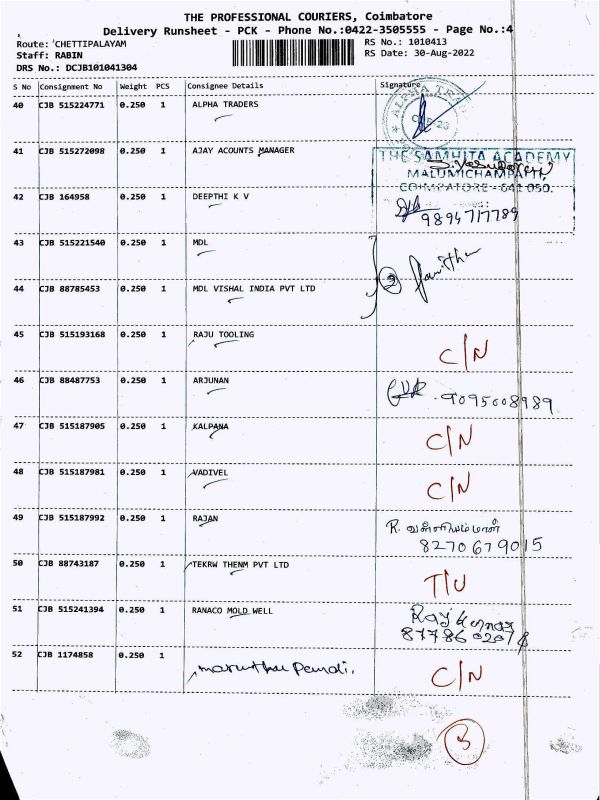 THE PROFESSIONAL COURIERS, Coimbatore
Delivery Runsheet - PCK - Phone No.:0422-3505555 - Page No.:4
Route: CHETTIPALAYAM
RS No.: 1010413
Staff: RABIN
RS Date: 30-Aug-2022
DRS No.: DCJB101041304
S No Consignment No Weight PCS Consignee Details Signature
40 CJB 515224771 0.250 1 ALPHA TRADERS
ALPHA TRA
41 CJB 515272098 0.250 1 AJAY ACOUNTS MANAGER
THE SAMHITA ACADEMY
MALUMICHAMPATTI,
COIMBATORE - 641 050.
42 CJB 164958 0.250 1 DEEPTHI K V
9894717789
43 CJB 515221540 0.250 1 MDL
44 CJB 88785453 0.250 1 MDL VISHAL INDIA PVT LTD
2
45 CJB 515193168 0.250 1 RAJU TOOLING C/N
46 CJB 88487753 0.250 1 ARJUNAN 9095008989
47 CJB 515187905 0.250 1 KALPANA C/N
48 CJB 515187981 0.250 1 VADIVEL C/N
49 CJB 515187992 0.250 1 RAJAN R. வள்ளியம்மாள்
8270679015
50 CJB 88743187 0.250 1 TEKRW THENM PVT LTD T/U
51 CJB 515241394 0.250 1 RANACO MOLD WELL Rajkumar
52 CJB 1174858 0.250 1 C/N
3